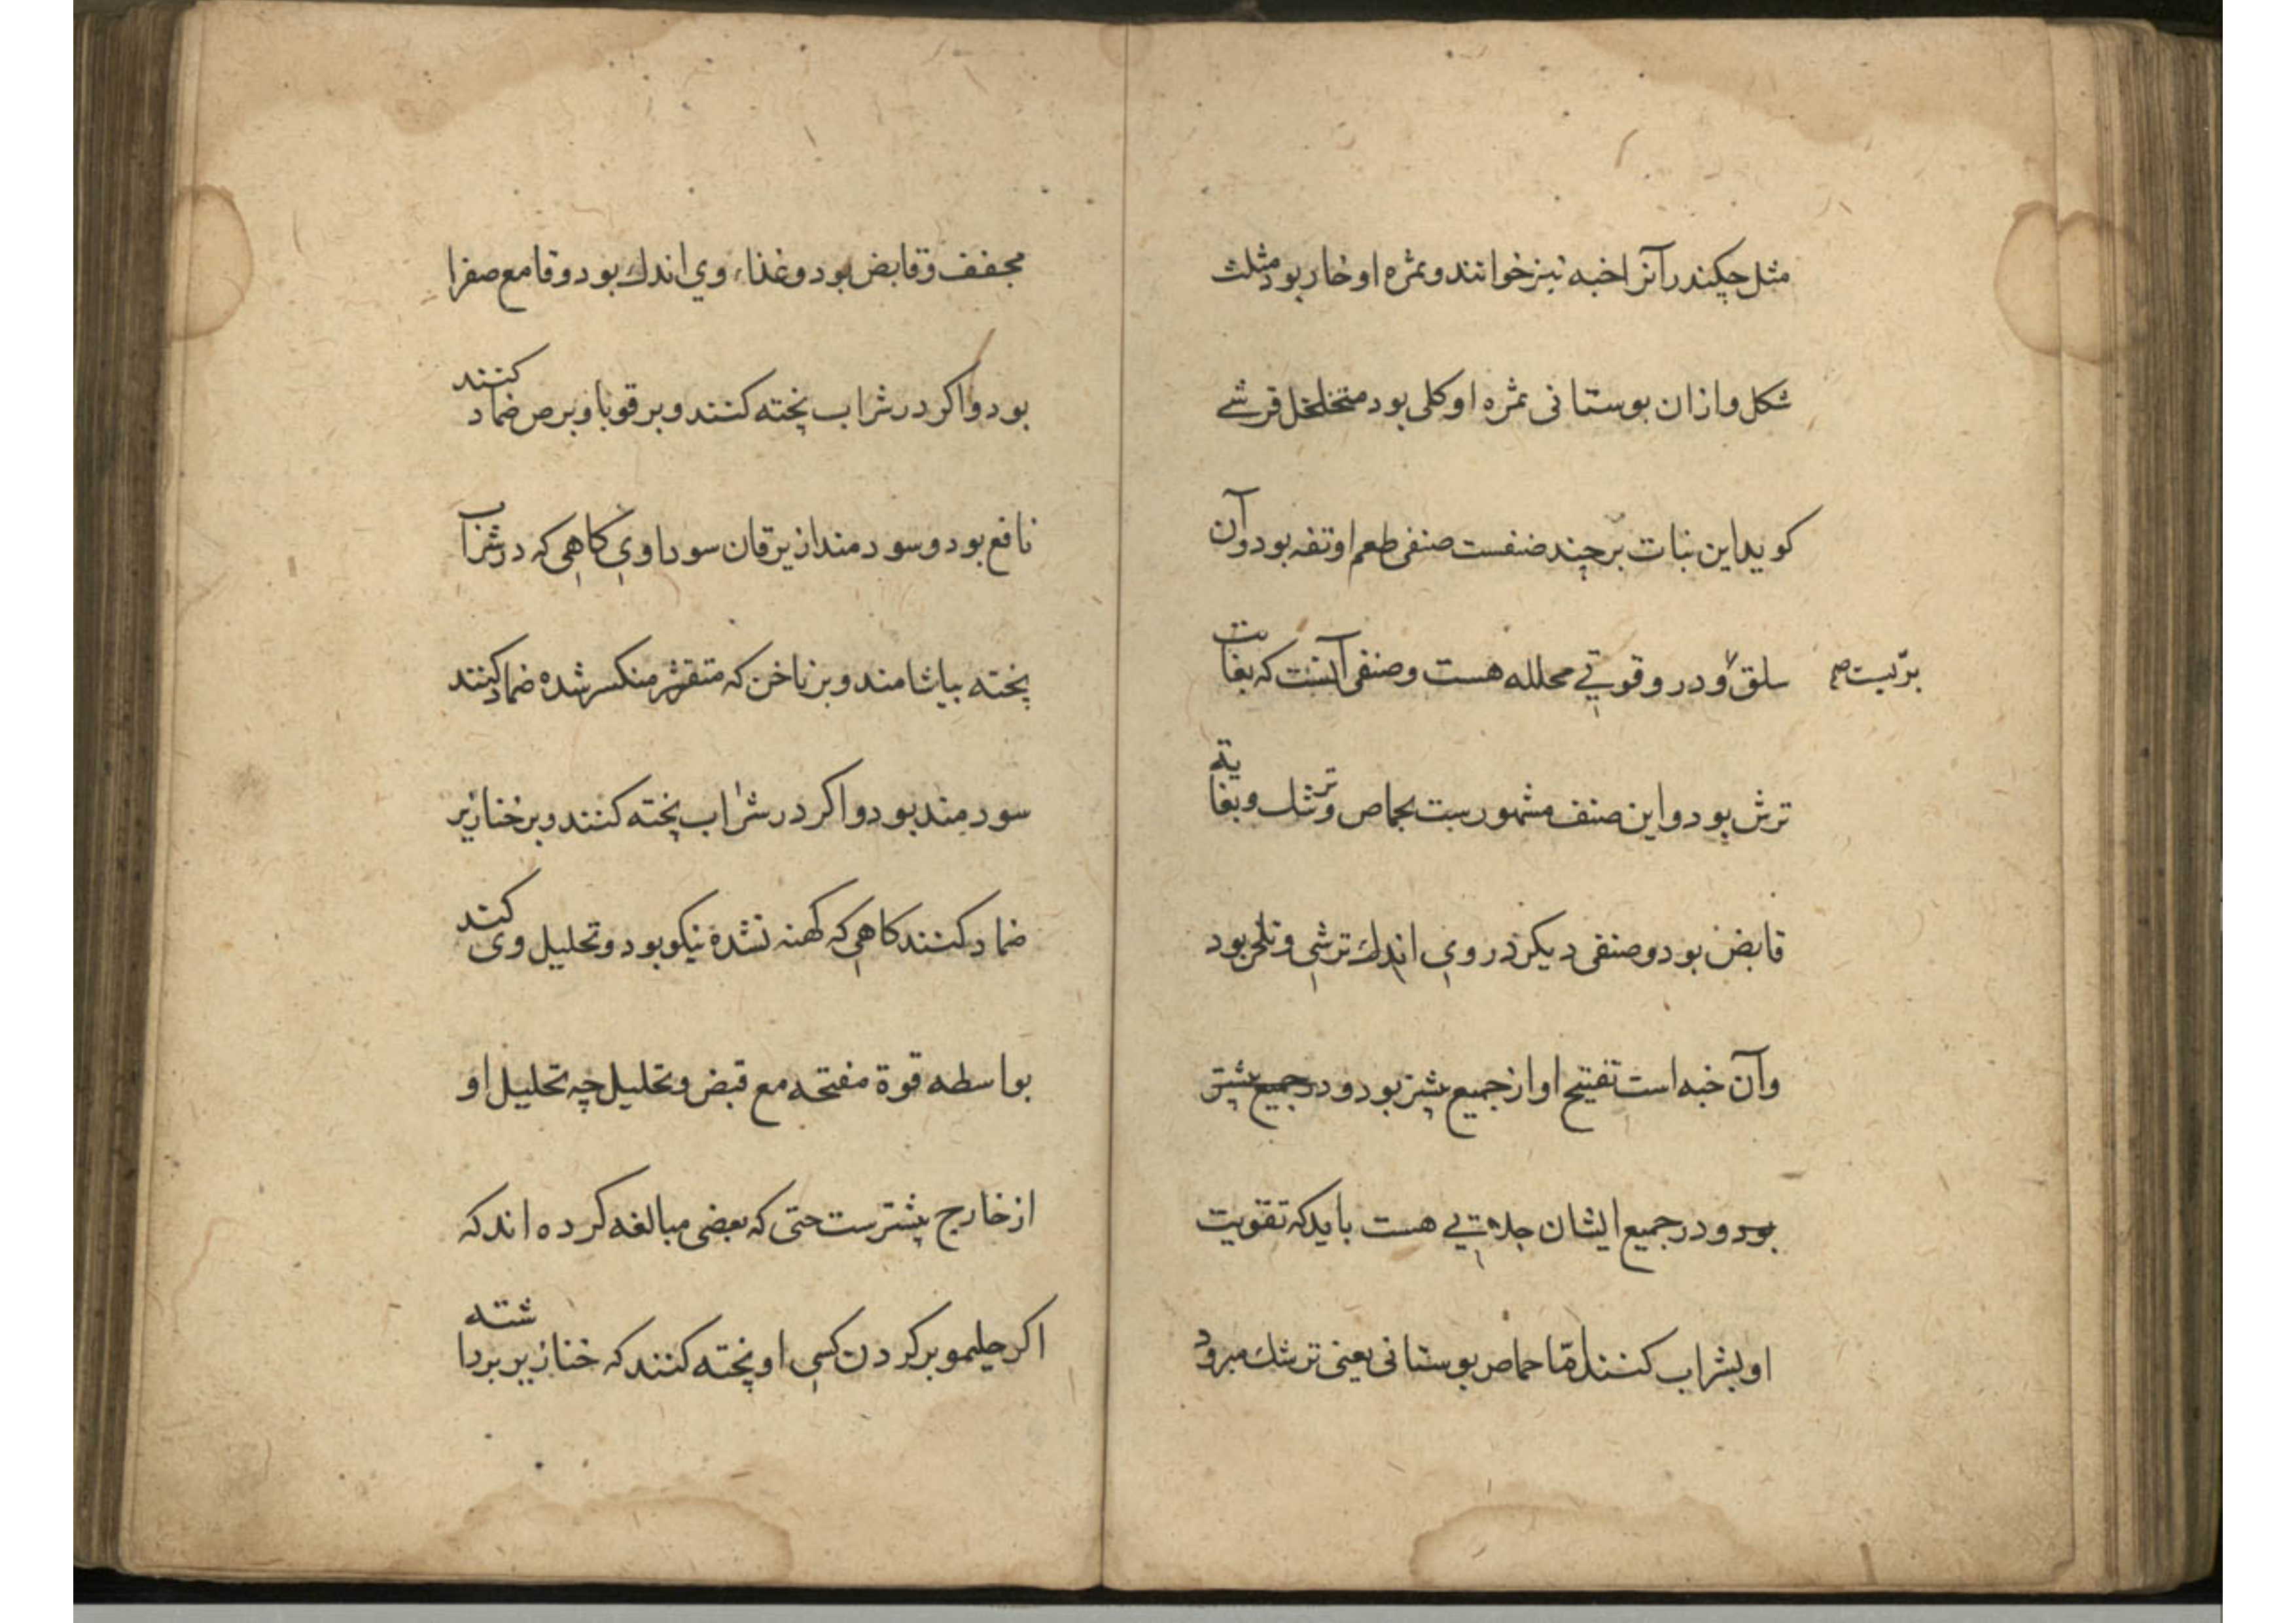 مثل چکیندر آنرا خبه نیز خوانند و ثمره او خار بود مثلث
شکل و ازان بوستانی ثمره او کلی بود متخلخل قرشی
کوید این نبات بر چند صنفست صنفی طعم او تفه بود و آن
سلق و درو قوتی محلله هست و صنفی آنست که بغایت
بریست صح
ترش بود و این صنف مشهورست بحماص و ترشک و بغایة
قابض بود و صنفی دیکر در وی اندك ترشی و تلخی بود
و آن خبه است تفتیح او از جمیع بیشتر بود و در جمیع بیشتر
بود و در جمیع ایشان جلاتی هست باید که تقویت
او بشراب کنند اما حماض بوستانی یعنی ترشك مبرود
مجفف و قابض بود و غذاء وی اندك بود و قامع صفرا
بود و اکر در شراب پخته کنند و بر قوبا و برص ضماد کنند
نافع بود و سودمند از یرقان سوداوی کاهی که در شراب
پخته بیاشامند و بر ناخن که متقشر منکسر شده ضماد کنند
سودمند بود و اکر در شراب پخته کنند و بر خنازیر
ضماد کنند کاهی که کهنه نشده نیکو بود و تحلیل وی کند
بواسطه قوة مفتحه مع قبض و تحلیل چه تحلیل او
از خارج بیشترست حتی که بعضی مبالغه کرده اند که
اکر بر کردن کسی او پخته کنند که خنازیر برداشته